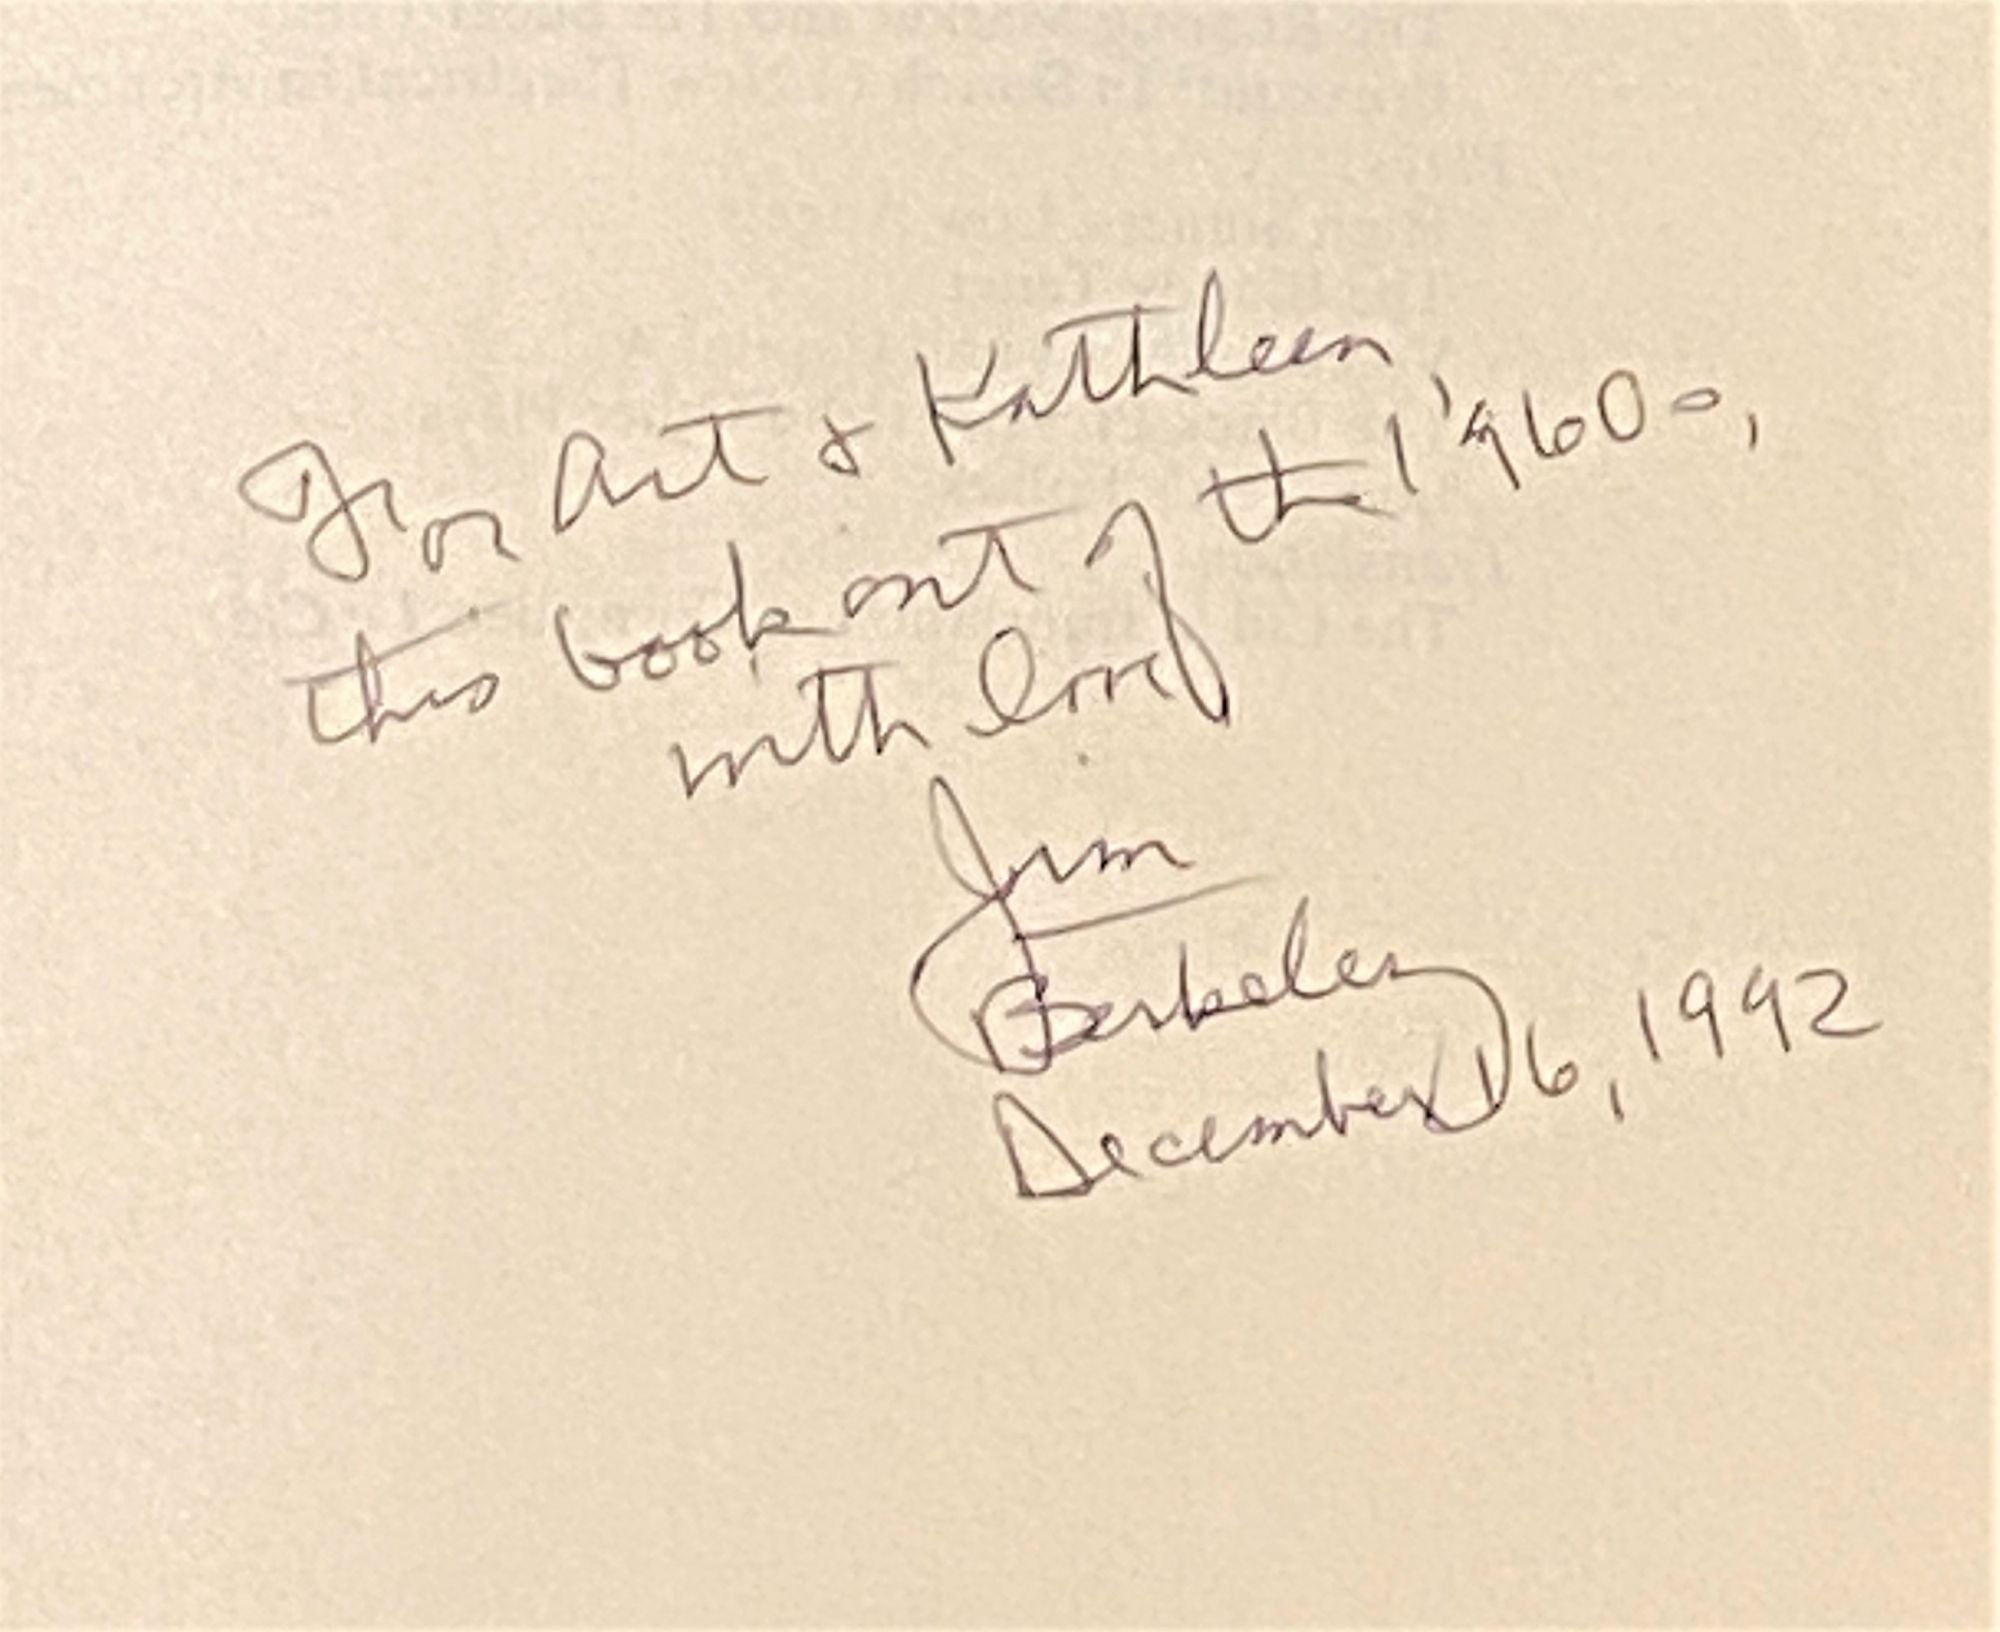 For Art & Kathleen,
this book out of the 1960s,
with love
Jim
Berkeley
December 16, 1992